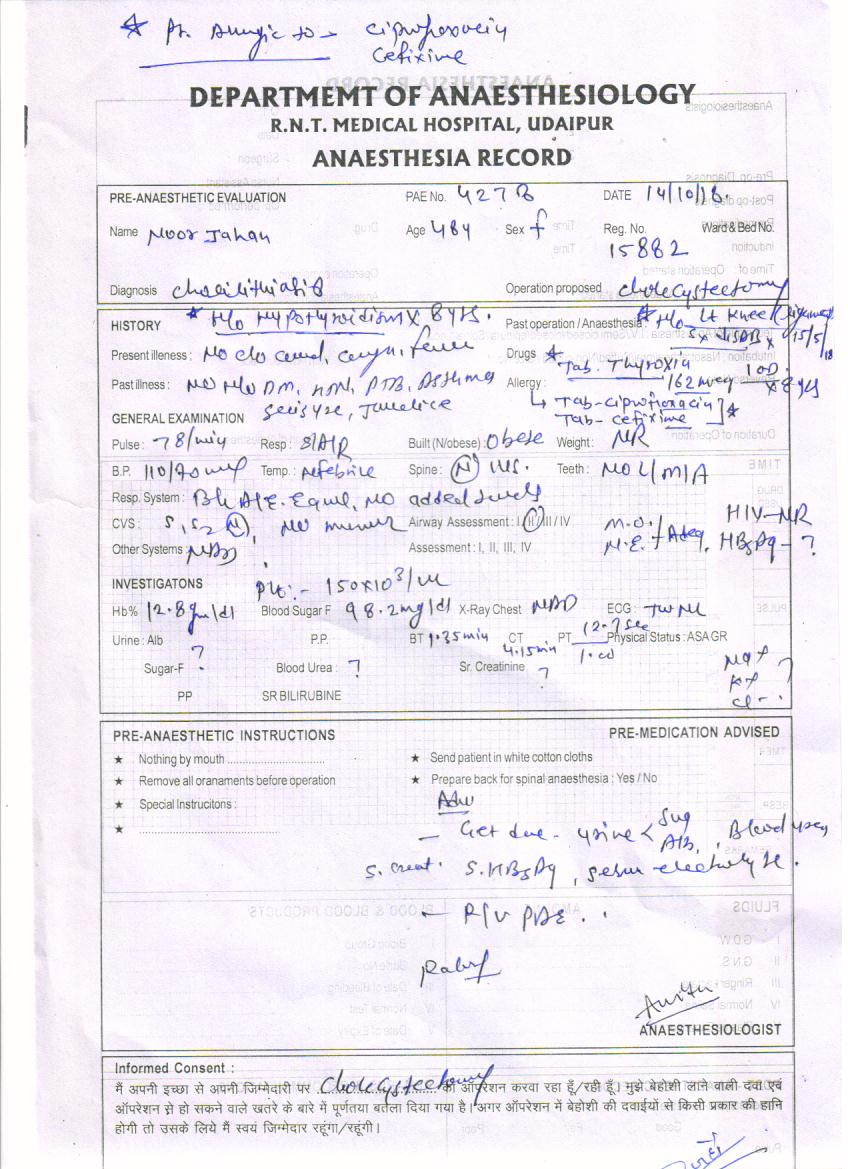 Pt. Allergic to → Ciprofloxacin
Cefixime
DEPARTMEMT OF ANAESTHESIOLOGY
R.N.T. MEDICAL HOSPITAL, UDAIPUR
ANAESTHESIA RECORD
PRE-ANAESTHETIC EVALUATION PAE No. 4278 DATE 14/10/18.
Name Noor Jahan Age 48y Sex f Reg. No. 15882 Ward & Bed No.
Diagnosis Operation proposed cholecystectomy
HISTORY * H/o Hypothyroidism x 8 yrs. Past operation / Anaesthesia : * H/o Lt Knee
15/5/18
Present illness : No c/o cough, fever Drugs * Tab. Thyroxin
162 mcg 1 OD x 8 yrs
Past illness : No H/o DM, HTN, PTB, Asthma Allergy : Tab - ciprofloxacin
Tab - cefixime
seizure, Jaundice
GENERAL EXAMINATION
Pulse : 78/min Resp : Built (N/obese) : Obese Weight : NR
B.P. 110/70 Temp. : Afebrile Spine : N Teeth : NO L/M/A
Resp. System : B/L A/E Equal, NO added sounds
CVS : S1 S2 N, NO murmur Airway Assessment : I / II / III / IV M.O. HIV - NR
Other Systems NAD Assessment : I, II, III, IV N.E. Adeq. HBsAg - ?
INVESTIGATONS Plt :- 150x10³/ul
Hb% 12.8 gm/dl Blood Sugar F 98.2 mg/dl X-Ray Chest NAD ECG :
Urine : Alb ? P.P. BT 1.35 min CT 4.15 min PT 12.7 sec Physical Status : ASA GR
Sugar-F ? Blood Urea : ? Sr. Creatinine ? Na+ K+ Cl- ?
PP SR BILIRUBINE
PRE-ANAESTHETIC INSTRUCTIONS PRE-MEDICATION ADVISED
★ Nothing by mouth ............................ ★ Send patient in white cotton cloths
★ Remove all oranaments before operation ★ Prepare back for spinal anaesthesia : Yes / No
★ Special Instrucitons : Adv
★ ........................................
- Get due - urine < Sug Alb. , Blood urea
S. creat. S. HBsAg, serum electrolyte.
- R/v PAE.
ANAESTHESIOLOGIST
Informed Consent :
मैं अपनी इच्छा से अपनी जिम्मेदारी पर Cholecystectomy का ऑपरेशन करवा रहा हूँ/रही हूँ। मुझे बेहोशी लाने वाली दवा एवं
ऑपरेशन से हो सकने वाले खतरे के बारे में पूर्णतया बतला दिया गया है। अगर ऑपरेशन में बेहोशी की दवाईयों से किसी प्रकार की हानि
होगी तो उसके लिये मैं स्वयं जिम्मेदार रहूंगा/रहूंगी।